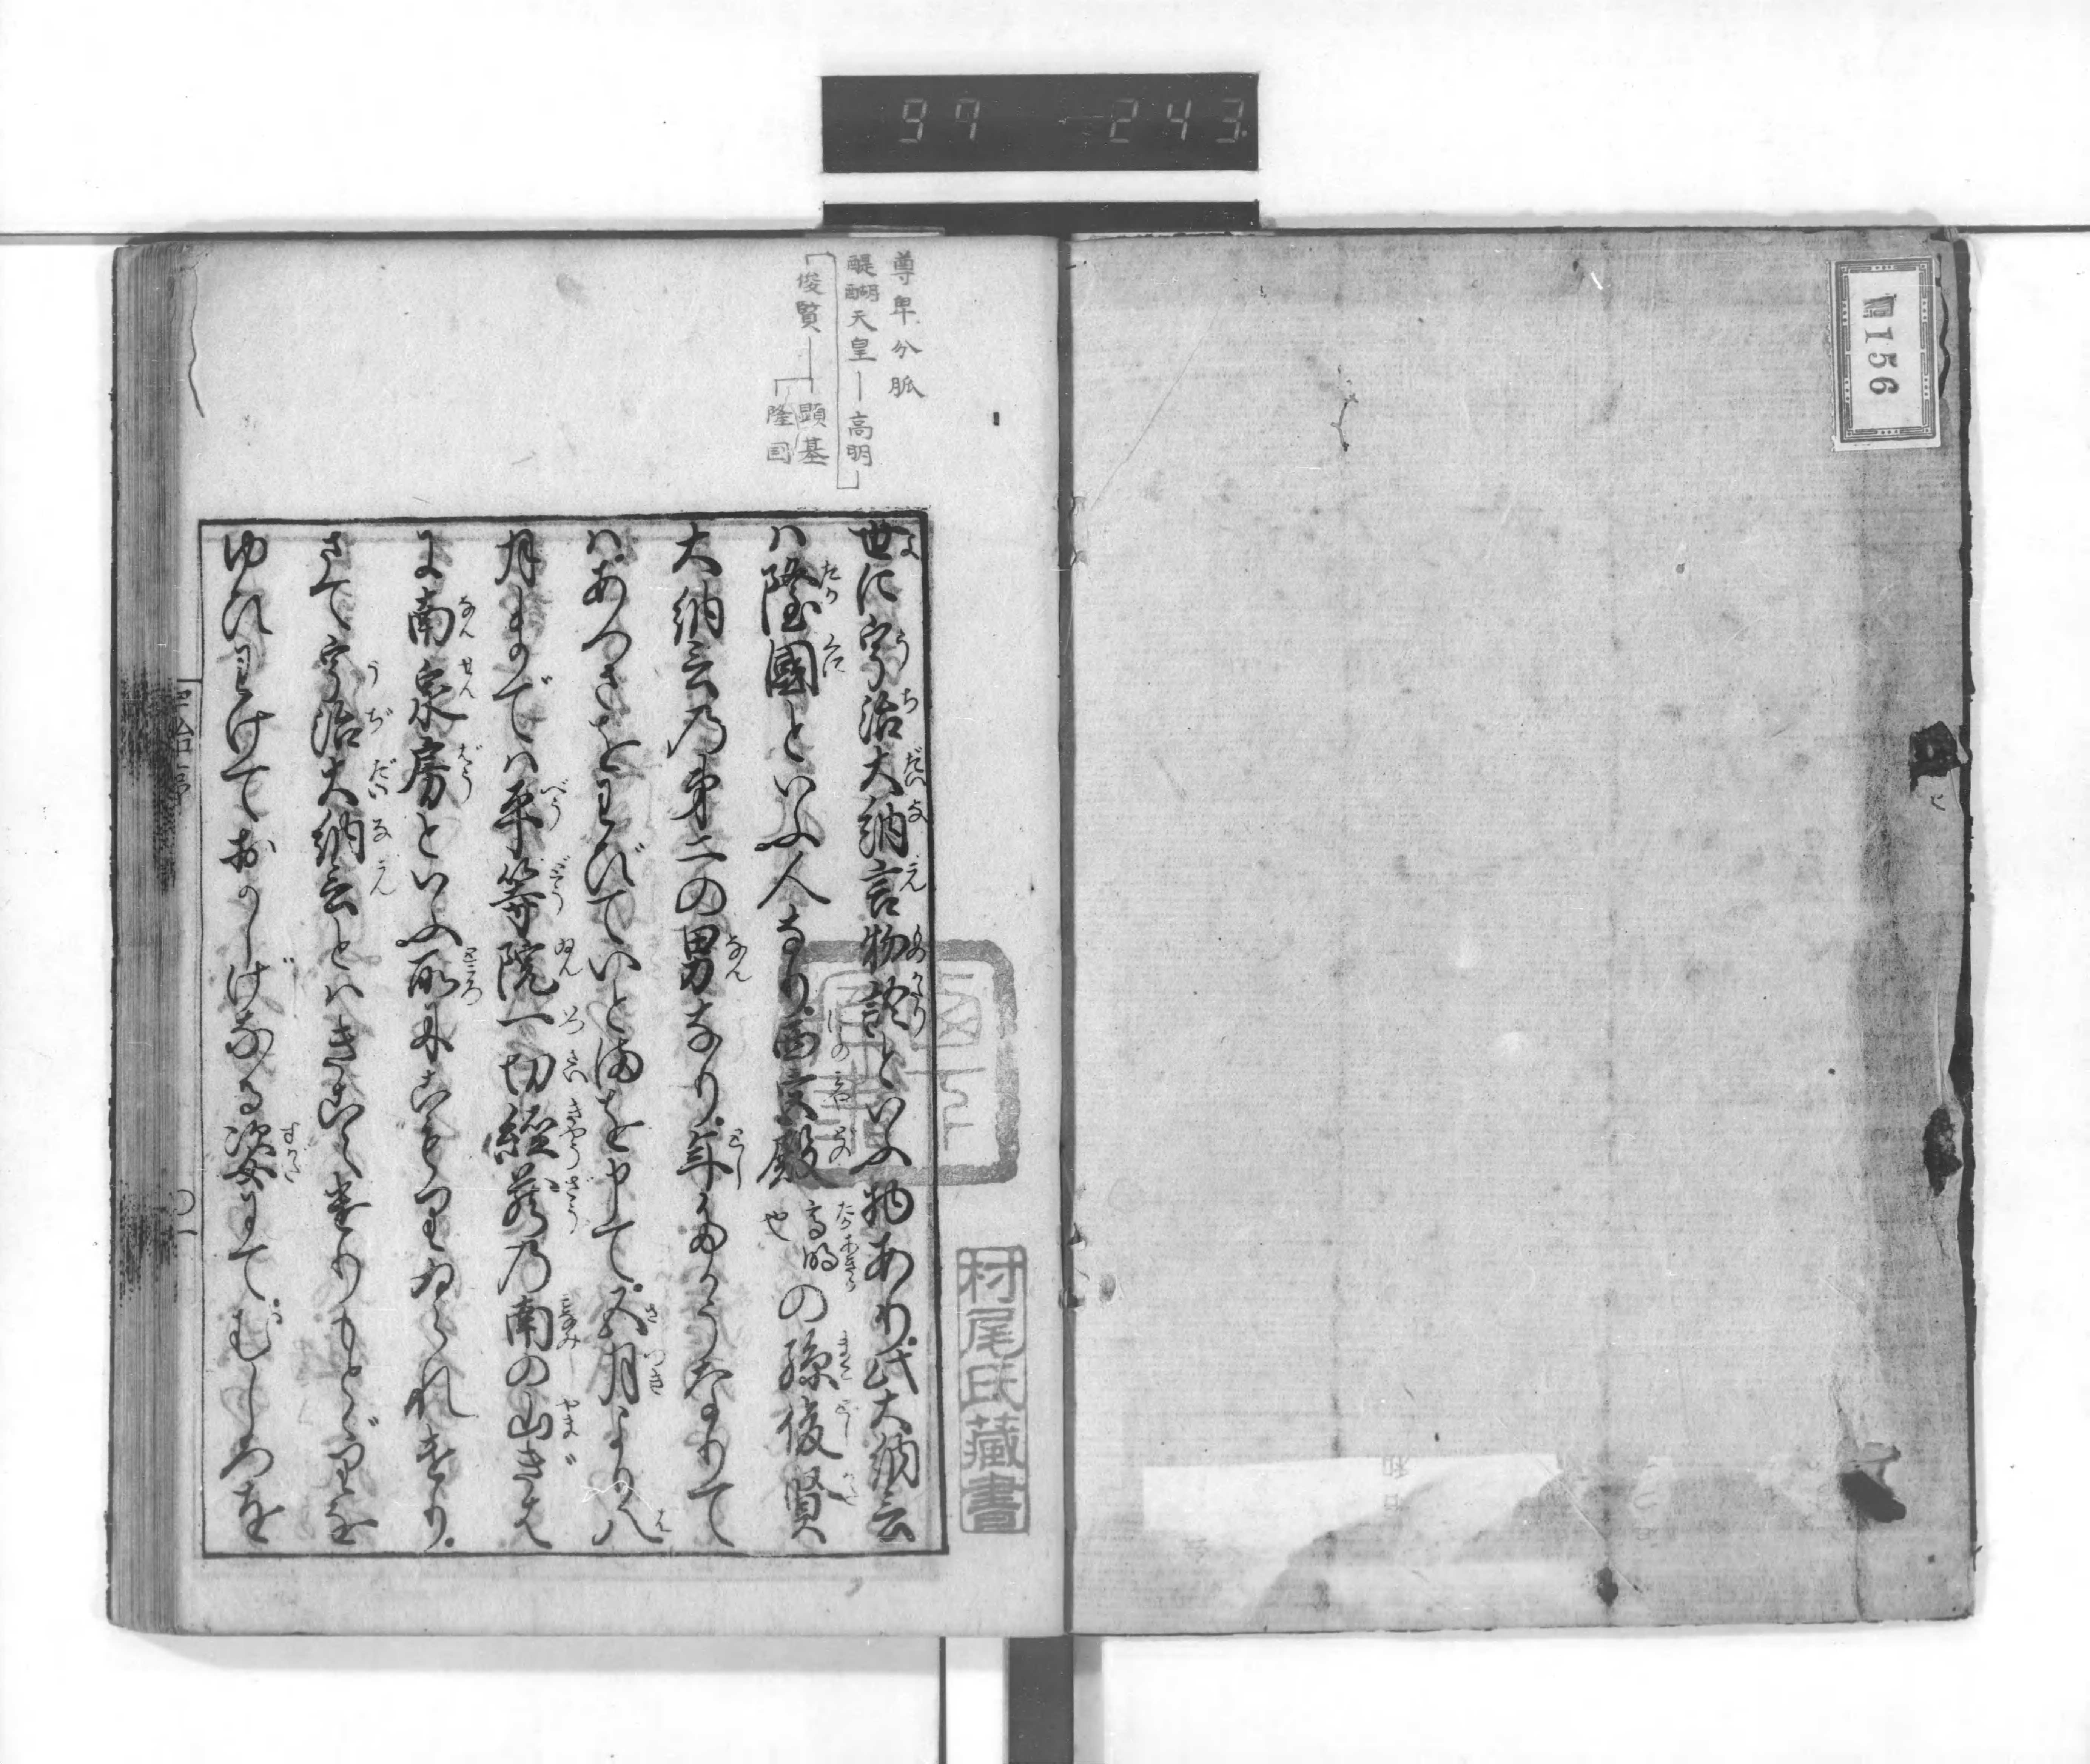 97 243
156
尊卑分脈
醍醐天皇―高明
俊賢―顕基
隆国
世に宇治大納言物語といふ物あり此大納言
ハ隆國といふ人なり西宮殿高明也の孫俊賢
大納言乃第二の男なり年たかうなりて
ハあつさをわびていとまを申て五月より八
月まではハ平等院一切經蔵乃南の山ぎは
に南泉房といふ所にこもりゐられけり
さて宇治大納言とハきこえけりもとゞりを
ゆひわけておかしげなる姿にてむしろを
村尾氏藏書